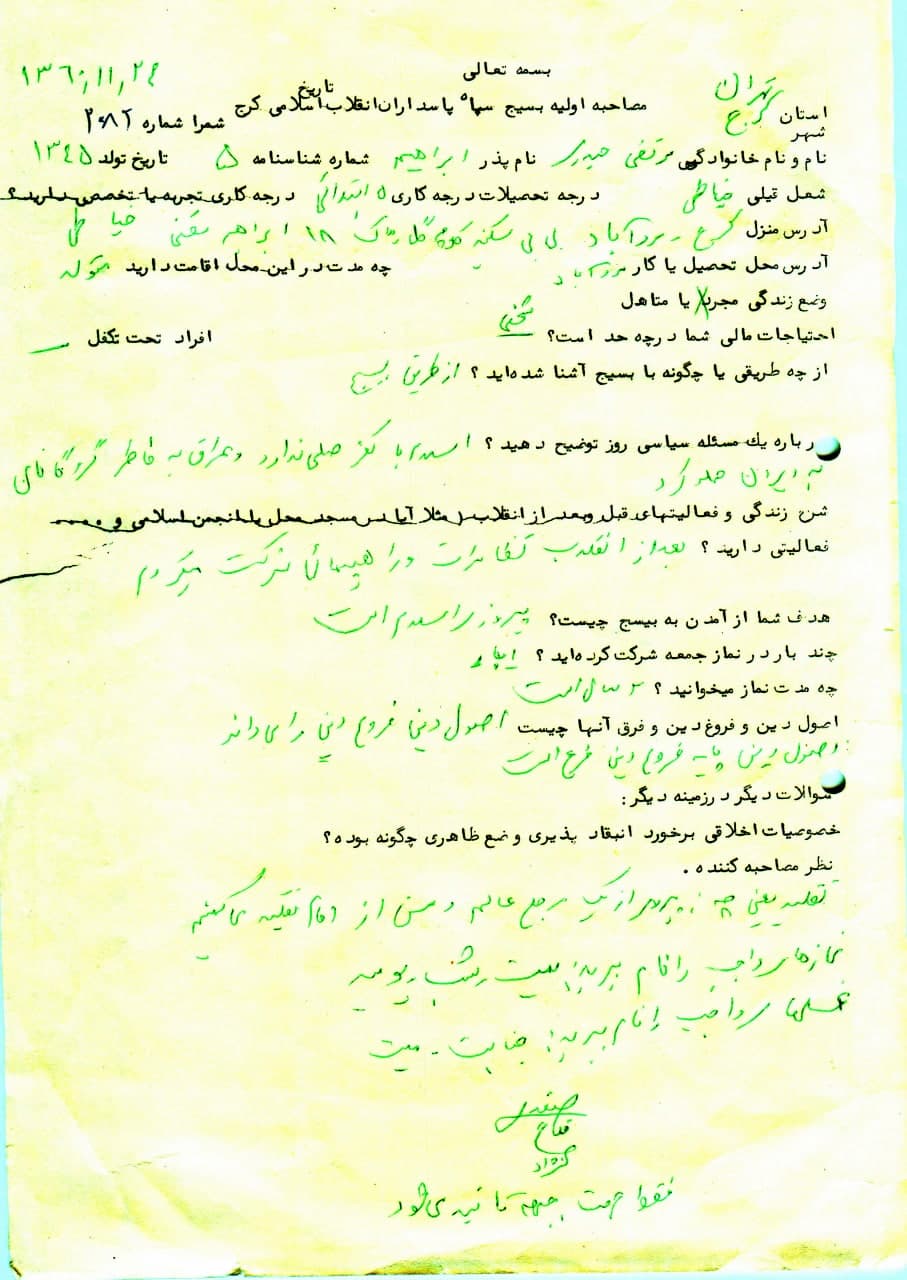 بسمه تعالی
تاریخ ۱۳۶۰,۱۱,۲۴
مصاحبه اولیه بسیج سپاه پاسداران انقلاب اسلامی کرج
شمرا شماره
استان تهران
شهر کرج
نام و نام خانوادگی مرتضی حیدری نام پدر ابراهیم شماره شناسنامه ۵ تاریخ تولد ۱۳۴۵
شغل قبلی خیاطی درجه تحصیلات درجه کاری ۵ ابتدائی درجه کاری تجربه یا تخصصی دارید؟
آدرس منزل کرج بی بی سکینه کوچه پلاک ۱۸ خیاطی
آدرس محل تحصیل یا کار چه مدت در این محل اقامت دارید
وضع زندگی مجرد یا متاهل
احتیاجات مالی شما در چه حد است؟ شخصی افراد تحت تکفل ـ
از چه طریقی یا چگونه با بسیج آشنا شده‌اید؟ از طریق بسیج
درباره یك مسئله سیاسی روز توضیح دهید؟ اسلام با کفر صلح ندارد و عراق به خاطر
به ایران حمله کرد
شرح زندگی و فعالیتهای قبل و بعد از انقلاب (مثلا آیا در مسجد محل یا انجمن اسلامی و ....
فعالیتی دارید؟ بعد از انقلاب تظاهرات و راهپیمائی شرکت میکردم
هدف شما از آمدن به بیسج چیست؟ پیروزی اسلام است
چند بار در نماز جمعه شرکت کرده‌اید؟
چه مدت نماز میخوانید؟ ۲ سال است
اصول دین و فروغ دین و فرق آنها چیست اصول دین فروع دین را می‌داند
اصول دین پایه فروع دین فرع است
سوالات دیگر در زمینه دیگر:
خصوصیات اخلاقی برخورد انبقاد پذیری وضع ظاهری چگونه بوده؟
نظر مصاحبه کننده.
تقلید یعنی چه: پیروی از یک مرجع عالم و من از امام تقلید میکنم
نمازهای واجب را نام ببرید: میت یومیه
غسلهای واجب را نام ببرید: جنابت ـ میت
فقط جهت جبهه تائید می‌شود